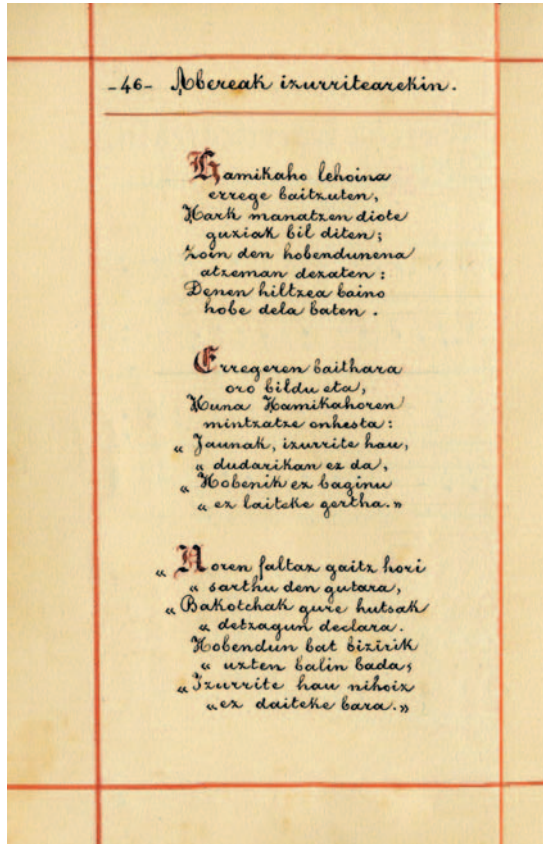 -46- Abereak izurritearekin.
Hamikaho lehoina
errege baitzuten,
Hark manatzen diote
guziak bil diten;
Zoin den hobendunena
atzeman dezaten:
Denen hiltzea baino
hobe dela baten.
Erregeren baithara
oro bildu eta,
Huna Hamikahoren
mintzatze onhesta:
« Jaunak, izurrite hau,
« dudarikan ez da,
« Hobenik ez baginu
« ez laiteke gertha.»
« Noren faltaz gaitz hori
« sarthu den gutara,
« Bakotchak gure hutsak
« detzagun declara.
Hobendun bat bizirik
« uzten balin bada,
« Izurrite hau nihoiz
« ez daiteke bara.»